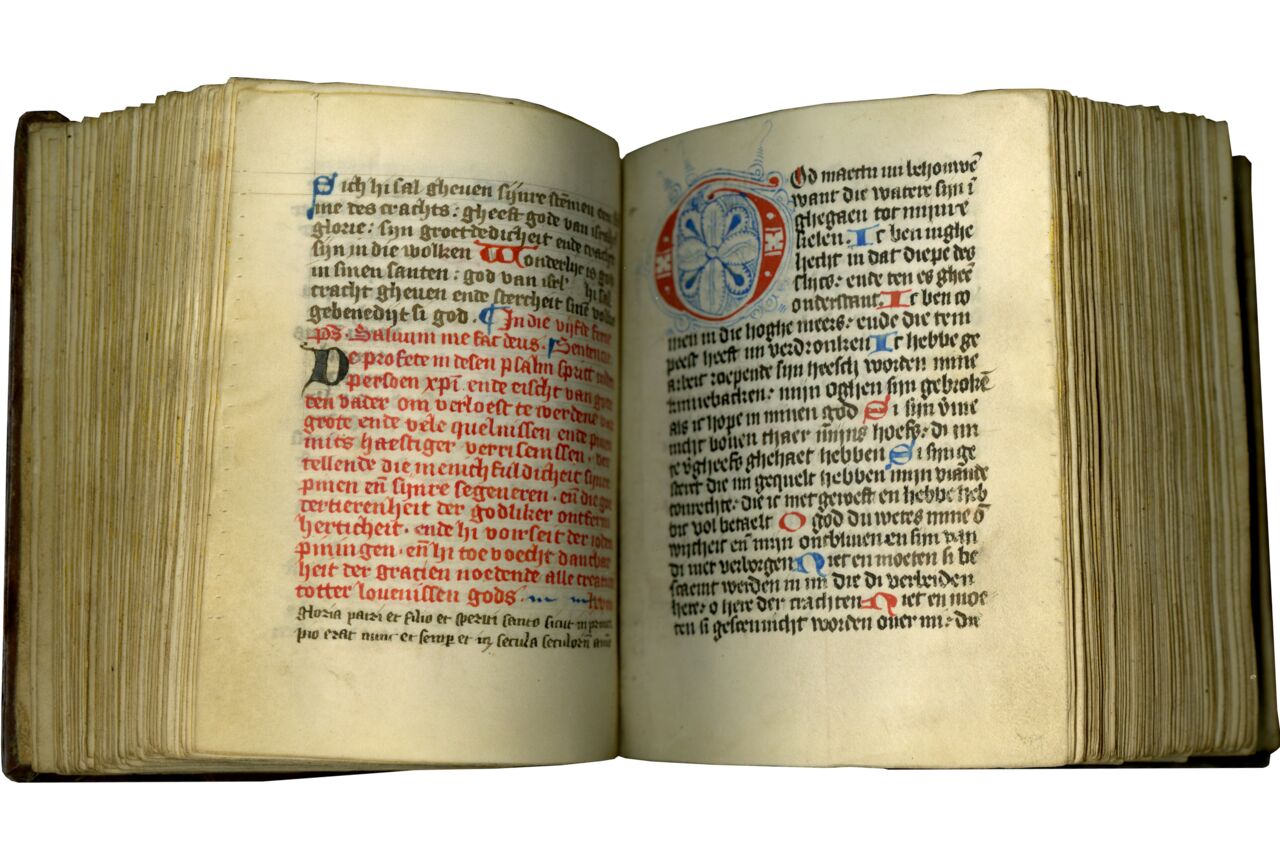 Sich hi sal gheven sijnre stēmen een
me des crachts: gheeft gode van
glorie: sijn grootdedicheit ende cracht
sijn in die wolken Wonderlijc is god
in sinen santen: god van isrl' hi sal
cracht gheven ende stercheit sinē volke
gebenedijt si god. In die vijfte ferie
ps. Saluum me fac deus. Sentencie
De profete in desen psalm sprict
persoen xpi ende eischt van gode
den vader om verloest te werdene van
grote ende vele quelnissen ende pinen
mits haestiger verrisenissen. ver
tellende die menichfuldicheit sijnre
pinen en̄ sijnre segeneren. en̄ die
dertierenheit der godliker ontferm
herticheit. ende hi voirseit der ioden
piningen. en̄ hi toe voecht dancbar
heit der gracien noedende alle creatur
totter lovenissen gods.
gloria patri et filio et spiritui santo sicut in princi
pio erat nunc et semp et in secula seculorū amē
God maectu mi behouwē
want die watere sijn ī
ghegaen tot mijnre
sielen. Ic ben inghe
hecht in dat diepe des
slics: ende ten es gheē
onderstant. Ic ben co
men in die hoghe meers: ende die tem
peest heeft mi verdronken Ic hebbe ge
arbeit roepende sijn heesch worden mine
kinnebacken: mijn oghen sijn gebrokē
als ic hope in minen god Si sijn v̄me
nicht boven thaer mijns hoefs: di mi
te v̄gheefs ghehaet hebben Si sijn ge
sterct die mi gequelt hebben mijn viāde
tonrechte: die ic niet geroeft en hebbe heb
dic vol betaelt O god du wetes mine ō
wijtheit en̄ mijn ontbliven en sijn van
di niet verborgen Niet en moeten si be
scaemt werden in mi die di verbeiden
here: o here der crachten Niet en moe
ten si gescennicht worden over mi: die